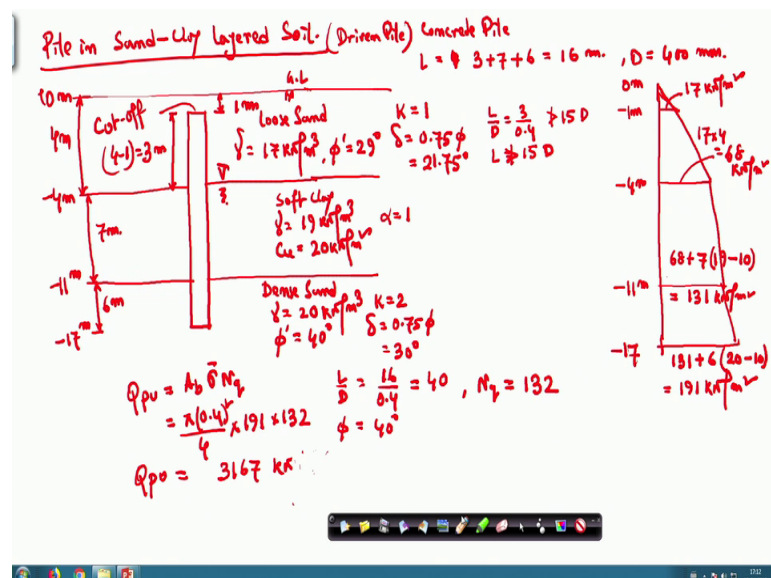 Pile in Sand-Clay Layered Soil. (Driven Pile) Concrete Pile
L = 3+7+6 = 16 m. , D = 400 mm.
G.L
0m
4m
Cut-off
(4-1)=3m
1 m
Loose Sand
γ = 17 kN/m³, φ' = 29°
K = 1
δ = 0.75φ
= 21.75°
L/D = 3/0.4 ≯ 15 D
L ≯ 15 D
-4m
7m.
Soft Clay
γ = 19 kN/m³
α = 1
Cu = 20 kN/m²
-11m
6m
-17m
Dense Sand
γ = 20 kN/m³
φ' = 40°
K = 2
δ = 0.75φ
= 30°
0m
-1m
17 kN/m²
17×4
= 68
kN/m²
-4m
68+7(19-10)
-11m
= 131 kN/m²
-17
131+6(20-10)
= 191 kN/m²
Qpu = Ab σ̄ Nq
= π(0.4)²/4 × 191 × 132
Qpu = 3167 kN
L/D = 16/0.4 = 40 , Nq = 132
φ = 40°
17:12